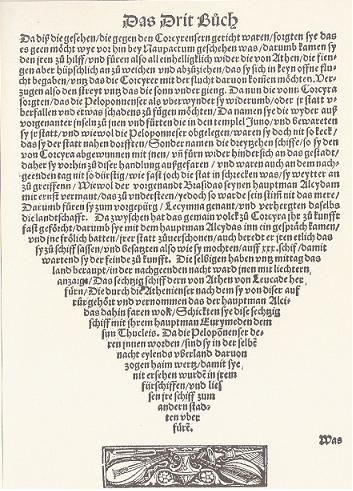 Das Drit Bůch
Da diß die gesehen/die gegen den Corcyrensern gericht waren/sorgten sye das
es geen möcht wye vor hin bey Naupactum geschehen was/darumb kamen sy
den jren zů hilff/vnd fůren also all einhelligklich wider die von Athen/die fien-
gen aber hüpschlich an zů weichen vnd abzůziehen/das sy sich in keyn offne flu-
cht begaben/vnd das die Corcyrer mit der flucht daruon komen möchten. Ver-
zugen also den streyt vntz das die sonn vnder gieng. Da nun die vonn Corcyra
sorgten/das die Peloponnenser als vberwynder sy widerumb/oder jr statt v-
berfallen vnd etwas schadens zů fügen möchten/Da namen sye die wyder auß
vorgenanter jnseln zů jnen vnd fůrten die in den tempel Juno/vnd bewareten
sy jr statt/vnd wiewol die Peloponneser obgelegen/waren sy doch nit so keck/
das sy der statt nahen dorfften/Sonder namen die dreyzehen schiffe/so sy den
von Corcyra abgewunnen mit jnen/vñ fůrn wider hindersich an das gestadt/
daher sy vorhin zů diser handlung außgefaren / vnd waren auch an dem nach-
geenden tag nit so dürstig/wie fast joch die stat in schrecken was/sy weytter an
zů greiffenn / Wiewol der vorgenandt Brasidas seynen hauptman Alcydam
mit ernst vermant/das zů vnderstehen/yedoch so ward sein stim nit das mere/
Darumb fůren sy zum vorgepürg / Leucymna genant/vnd verhergten daselbs
die landtschafft. Da zwyschen hat das gemain volck zů Corcyra jhr zů kunfft
fast geförcht/darumb sye mit dem hauptman Alcydas inn ein gespräch kamen/
vnd jne frölich batten/jrer statt zůuerschonen/auch beredt er jren etlich das
sy zů schiff sassen/vnd besatzten also wie sy mochten/auff xxx.schif/damit
wartend sy der feinde zů kunfft. Die selbigen haben vntz mittag das
land beraupt/in der nachgeenden nacht ward jnen mit liechtern
anzaigt/Das sechtzig schiff dern von Athen von Leucade her
fůrn/Die durch die Athenienser nach dem sy von diser auf
růr gehört vnd vernommen das der hauptman Alci-
das dahin faren wolt/Schickten sye dise sechtzig
schiff mit jhrem hauptman Eurymeden dem
sun Thucleis. Da die Peloponenser de-
ren jnnen worden/sind sy in der selbē
nacht eylends vberland daruon
zogen haim wertz/damit sye
nit ersehen wurdē in jrem
fürschiffen/vnd lies
sen jre schiff zum
andern stad-
ten vber
fürē.
Was